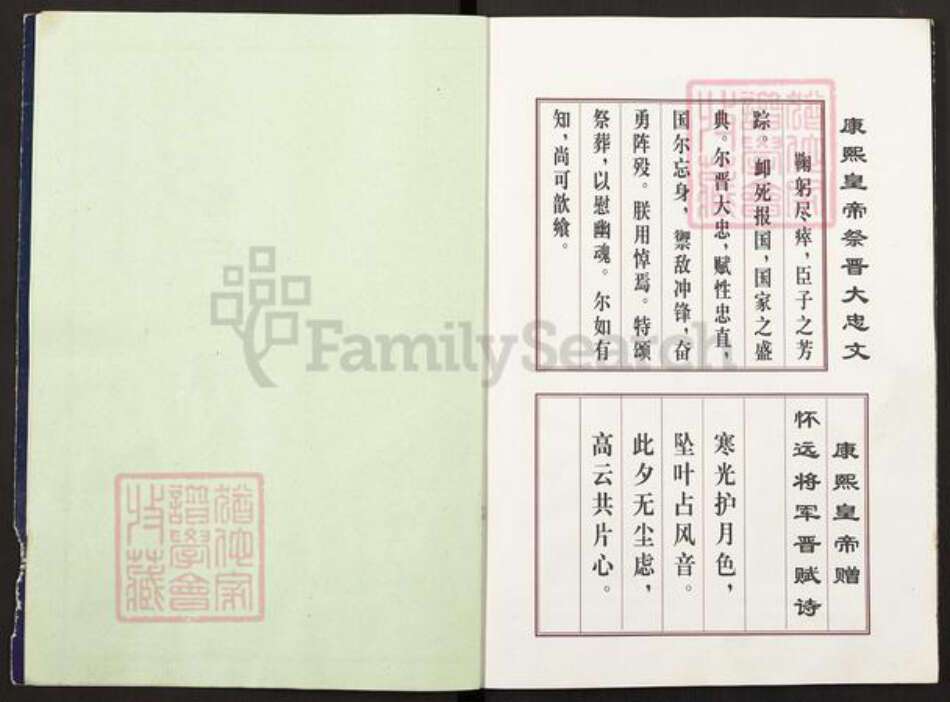 康熙皇帝祭晋大忠文
鞠躬尽瘁，臣子之芳
踪。卹死报国，国家之盛
典。尔晋大忠，赋性忠直，
国尔忘身，禦敌冲锋，奋
勇阵殁。朕用悼焉。特颁
祭葬，以慰幽魂。尔如有
知，尚可歆飨。
康熙皇帝赠
怀远将军晋赋诗
寒光护月色，
坠叶占风音。
此夕无尘虑，
高云共片心。
FamilySearch